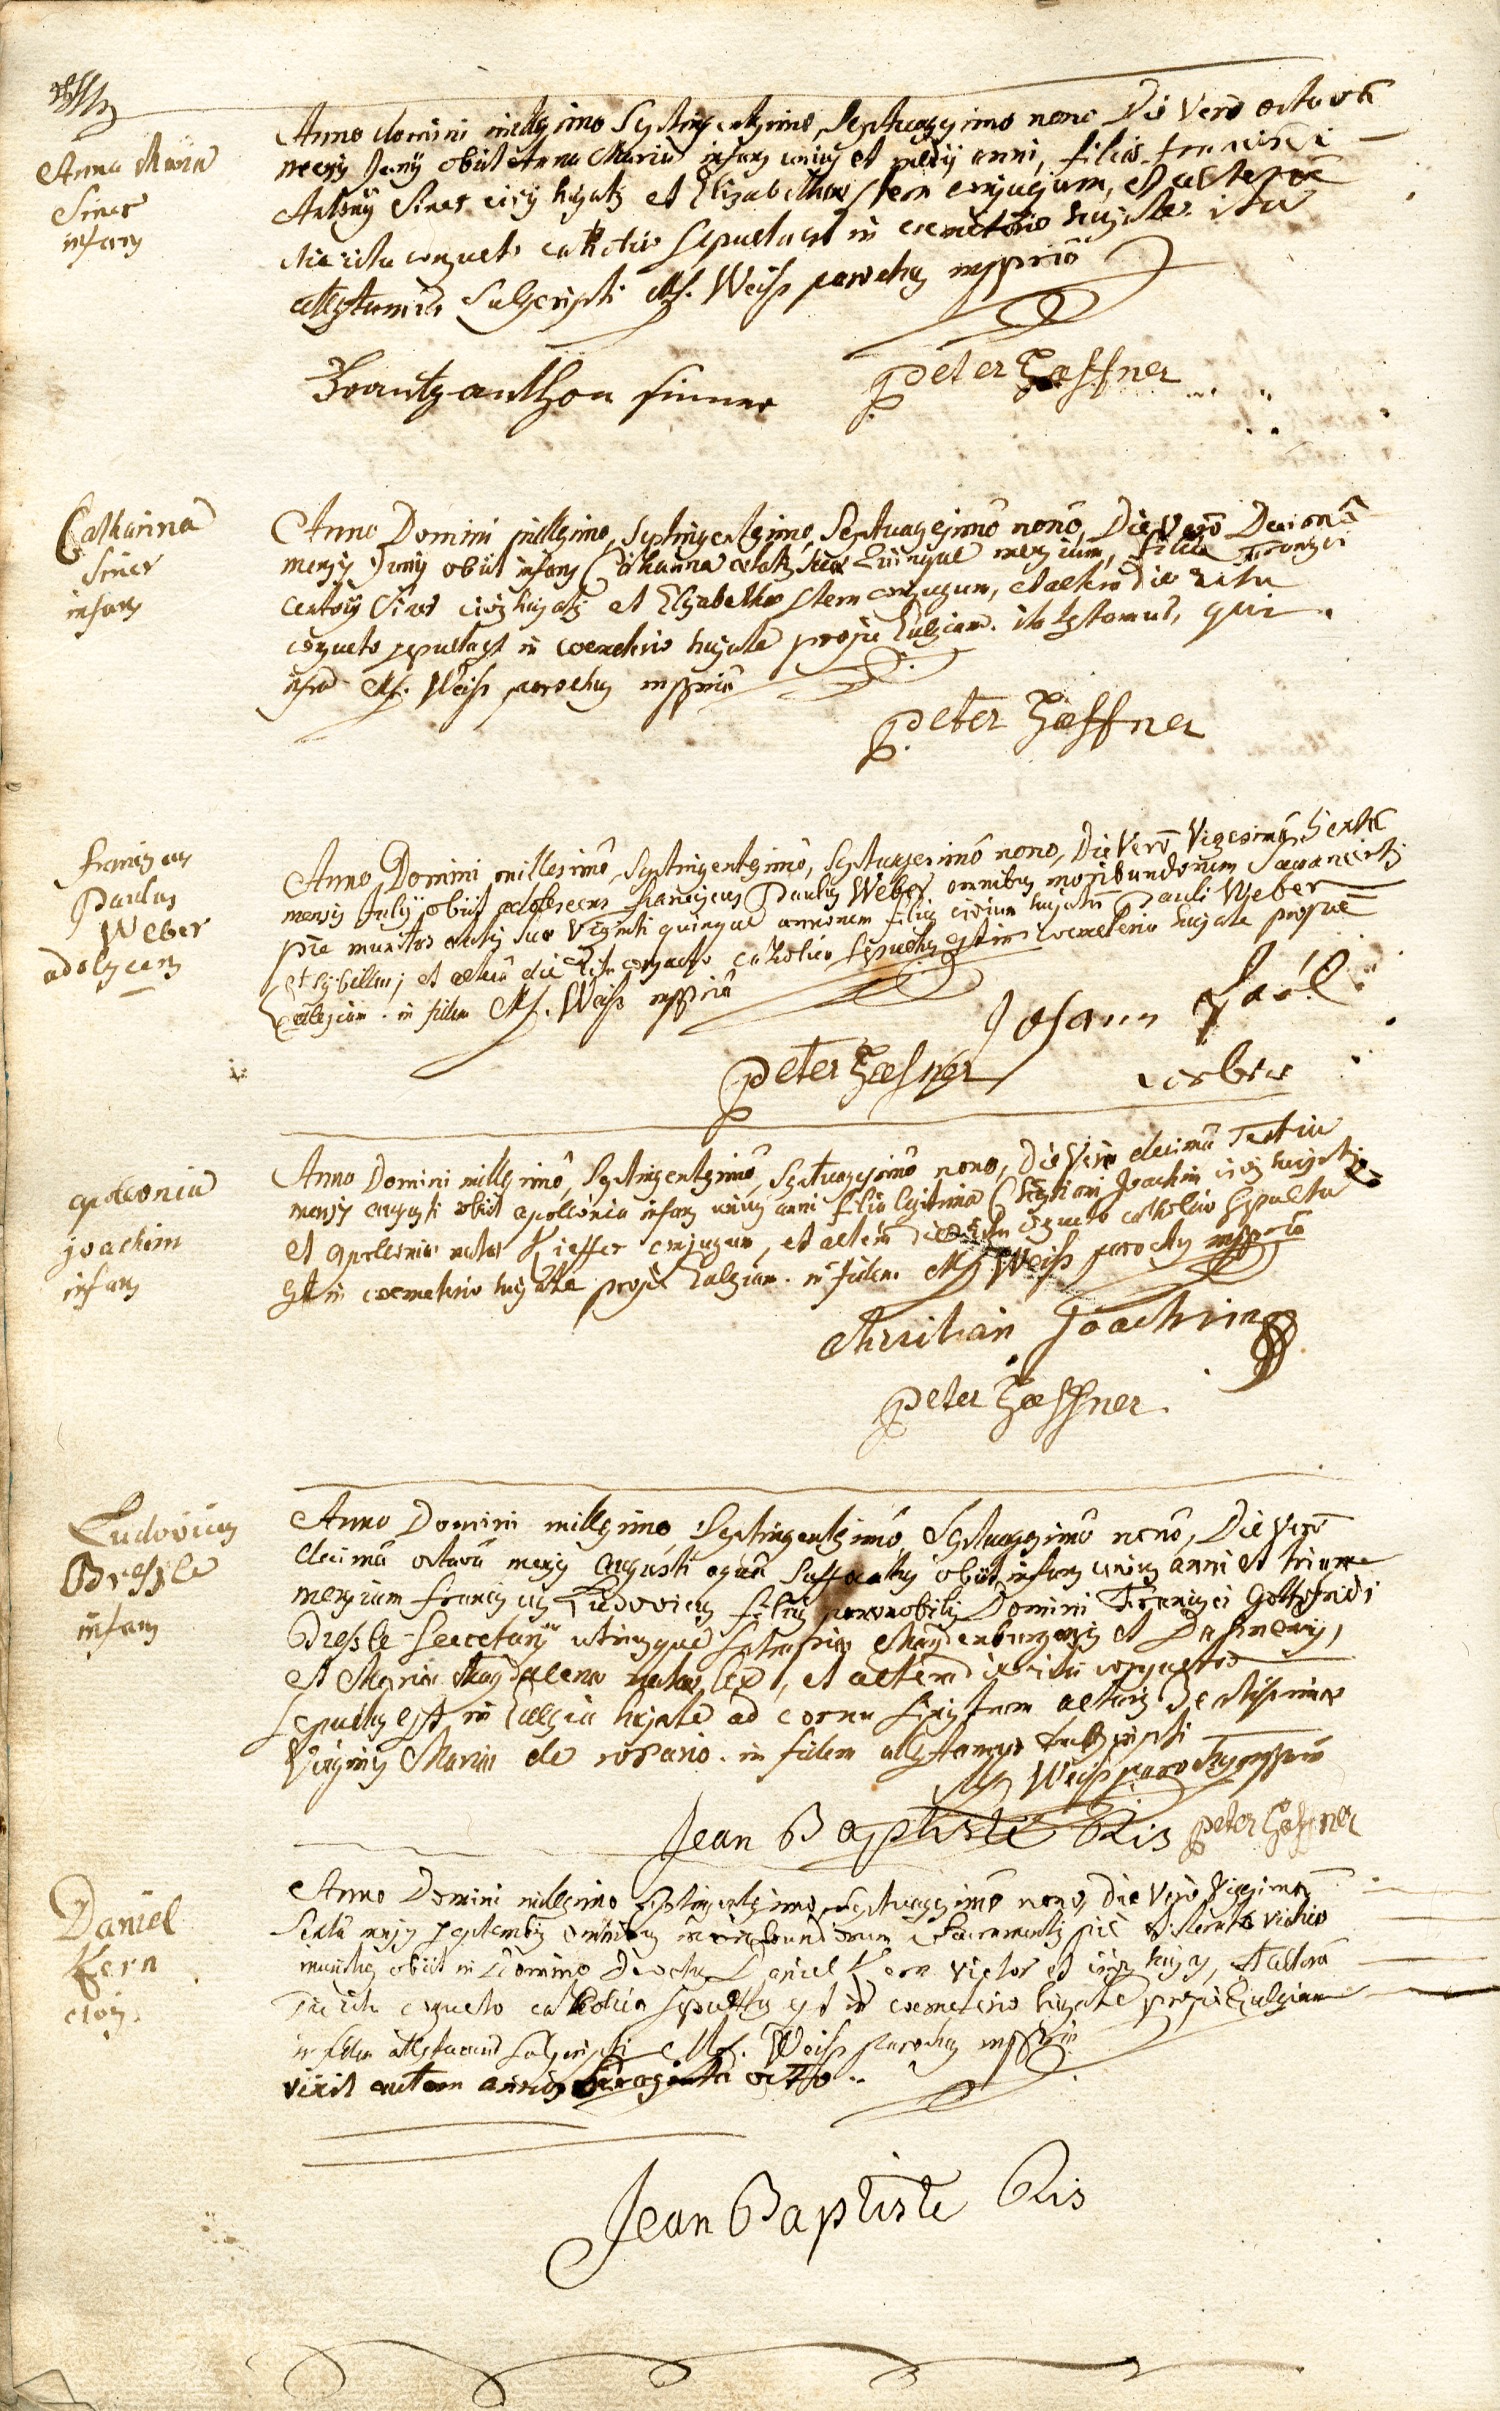 Anna Maria
Siner
infans
Anno domini millesimo Septingentesimo Septuagesimo nono Die Vero octava
mensis Junÿ obiit Anna Maria infans unius et medÿ anni, filia francisci
Antonÿ Siner civis hujatis et Elizabethae Stern conjugum, et altera
die ritu consueto catholico Sepulta est in coemeterio hujate. ita
attestamur Subscripti Mf. Weiss parochus mppriâ
Frantz anthon sinner
Peter Hæffner
Catharina
Siner
infans
Anno Domini millesimo, Septingentesimo, Septuagesimô nonô, Die Verô Decima
mensis Junÿ obiit infans Catharina aetatis suae quinque mensium, filia Francisci
Antonÿ Siner civis hujatis et Elisabethae Stern conjugum, et altera die ritu
consueto sepulta est in coemeterio hujate prope Ecclesiam. ita testamur, qui
infra Mf. Weiss parochus mppriâ
Peter Hæffner
franciscus
Paulus
Weber
adolescens
Anno Domini millesimô, Septingentesimô, Septuagesimô nono, Die Verô Vigesimâ Sextâ
mensis Julÿ obiit adolescens franciscus Paulus Weber omnibus moribundorum Sacramentis
pie munitus aetatis suae Viginti quinque annorum filius civium hujatum Pauli Weber
et Sybillae; et altera die ritu consueto catholico Sepultus est in coemeterio hujate prope
Ecclesiam. in fidem Mf. Weiss mppriâ
Johann
Peter Hæffner
weber
apolonia
joachim
infans
Anno Domini millesimô, Septingentesimô, Septuagesimô nono, Die Vero decimâ Tertia
mensis augusti obiit apollonia infans unius anni filia legitima Christiani Joachim civis hujatis
et apoloniae natae Kieffer conjugum, et alterâ die ritu consueto catholico Sepulta
Est in coemeterio hujate prope Ecclesiam. in fidem Mf Weiss parochus mppriâ
Christian Joachim
Peter Hæffner
Ludovicus
Dressle
infans
Anno Domini millesimo, Septingentesimô, Septuagesimô nonô, Die Verô
decimâ octavâ mensis Augusti aquâ Suffocatus obiit infans unius anni et trium
mensium franciscus Ludovicus filius praenobilis Domini Francisci Gottfridi
Dressle Secretarÿ utriusque
et Mariae Magdalenae natae, et altera die ritu consueto
Sepultus est in Ecclesia hujate ad cornu Sinistrum altaris Beatissimae
Virginis Mariae de rosario. in fidem attestamur Subscripti
Mf Weiss parochus mppriâ
Jean Baptiste Ris Peter Hæffner
Daniel
Kern
civis
Anno Domini millesimo Septingentesimo, Septuagesimô nono, Die Vero Vigesima
Sexta mensis Septembris omnibus moribundorum Sacramentis pie
munitus obiit in Domino Daniel Kern vietor et civis hujas, et altera
die ritu consueto catholico Sepultus est in coemeterio hujate prope Ecclesiam
in fidem attestamur Subscripti Mf. Weiss parochus mppriâ
vixit autem annis octo
Jean Baptiste Ris